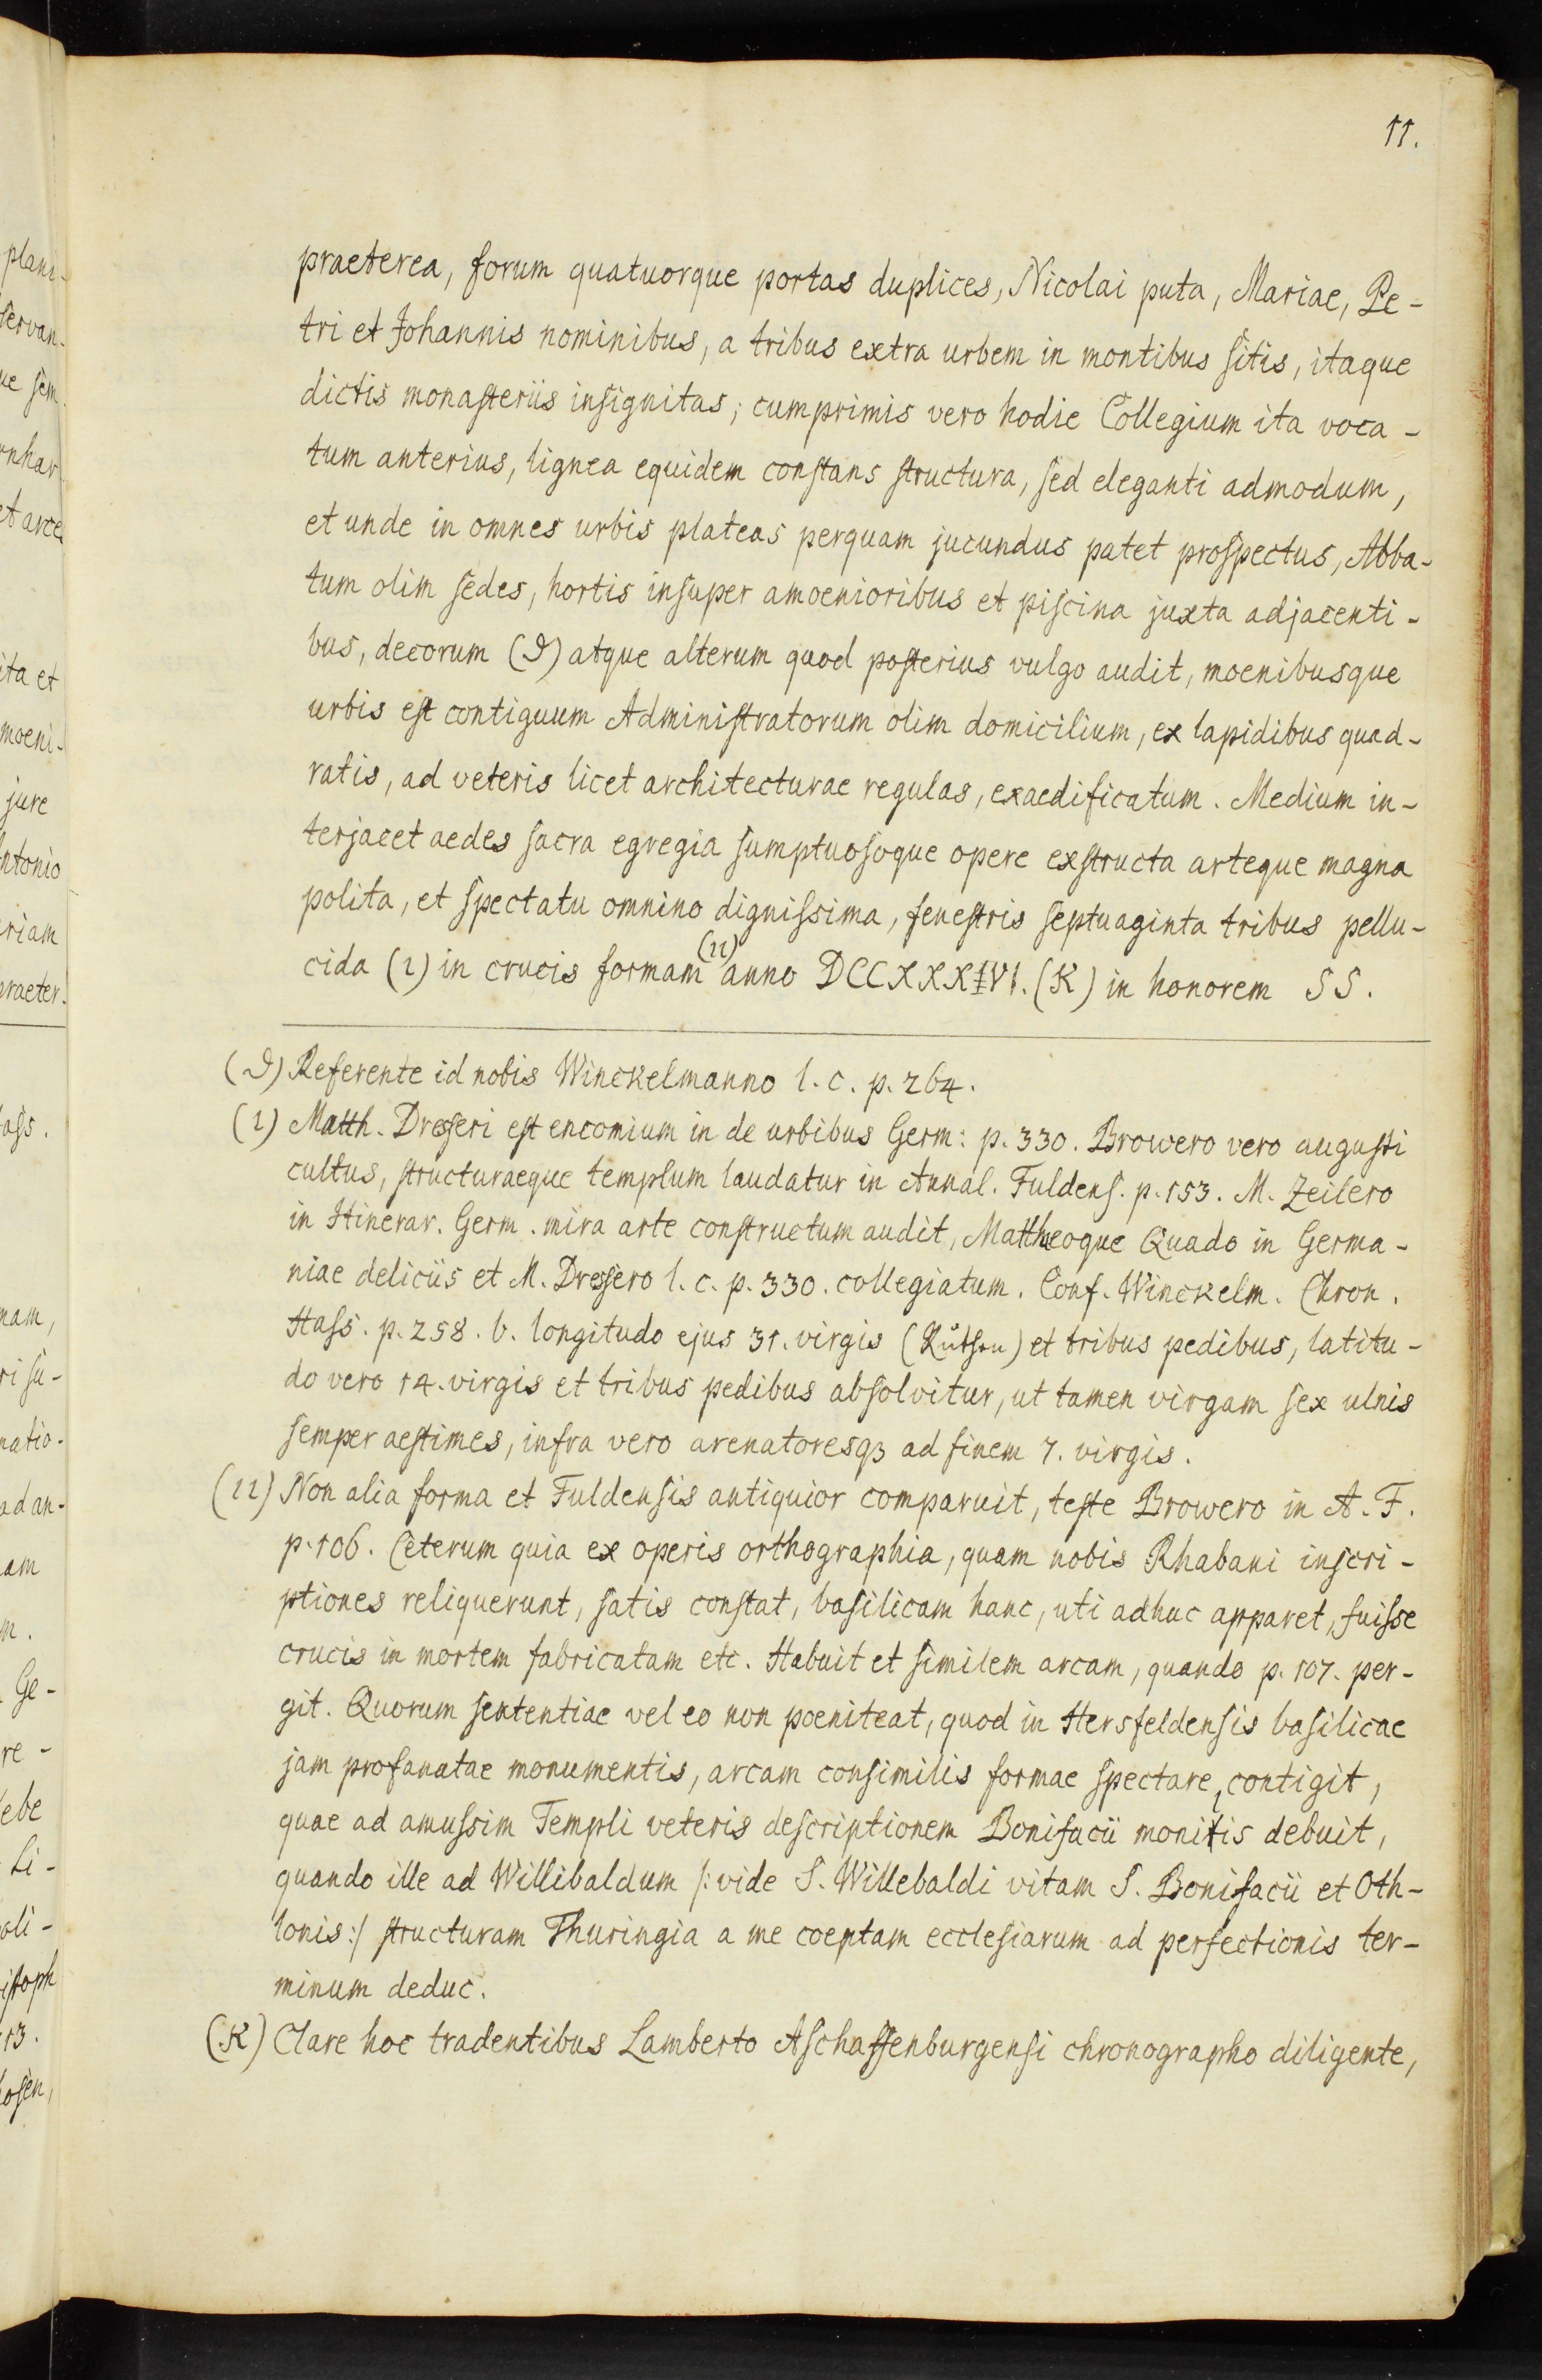 11.
praeterea, forum quatuorque portas duplices, Nicolai puta, Mariae, Pe-
tri et Johannis nominibus, a tribus extra urbem in montibus sitis, itaque
dictis monasteriis insignitas; cumprimis vero hodie Collegium ita voca-
tum anterius, lignea equidem constans structura, sed eleganti admodum,
et unde in omnes urbis plateas perquam jucundus patet prospectus, Abba-
tum olim sedes, hortis insuper amoenioribus et piscina juxta adjacenti-
bus, decorum (ϑ) atque alterum quod posterius vulgo audit, moenibusque
urbis est contiguum Administratorum olim domicilium, ex lapidibus quad-
ratis, ad veteris licet architecturae regulas, exaedificatum. Medium in-
terjacet aedes sacra egregia sumptuosoque opere exstructa arteque magna
polita, et spectatu omnino dignissima, fenestris septuaginta tribus pellu-
cida (ι) in crucis formam (ιι) anno DCCXXXVI. (K) in honorem SS.
(ϑ) Referente id nobis Winckelmanno l. c. p. 264.
(ι) Matth. Dresseri est encomium in de urbibus Germ: p. 330. Browero vero augusti
cultus, structuraeque templum laudatur in Annal. Fuldens. p. 153. M. Zeilero
in Itinerar. Germ. mira arte constructum audit, Mattheoque Quado in Germa-
niae deliciis et M. Dressero l. c. p. 330. collegiatum. Conf. Winckelm. Chron.
Hass. p. 258. b. longitudo ejus 31. virgis (Ruthen) et tribus pedibus, latitu-
do vero 14. virgis et tribus pedibus absolvitur, ut tamen virgam sex ulnis
semper aestimes, infra vero arenatoresqз ad finem 7. virgis.
(ιι) Non alia forma et Fuldensis antiquior comparuit, teste Browero in A. F.
p. 106. Ceterum quia ex operis orthographia, quam nobis Rhabani inscri-
ptiones reliquerunt, satis constat, basilicam hanc, uti adhuc apparet, fuisse
crucis in mortem fabricatam etc. Habuit et similem arcam, quando p. 107. per-
git. Quorum sententiae vel eo non poeniteat, quod in Hersfeldensis basilicae
jam profanatae monumentis, arcam consimilis formae spectare, contigit,
quae ad amussim Templi veteris descriptionem Bonifacii monitis debuit,
quando ille ad Willibaldum /: vide S. Willebaldi vitam S. Bonifacii et Oth-
lonis :/ structuram Thuringia a me coeptam ecclesiarum ad perfectionis ter-
minum deduc.
(K) Clare hoc tradentibus Lamberto Aschaffenburgensi chronographo diligente,